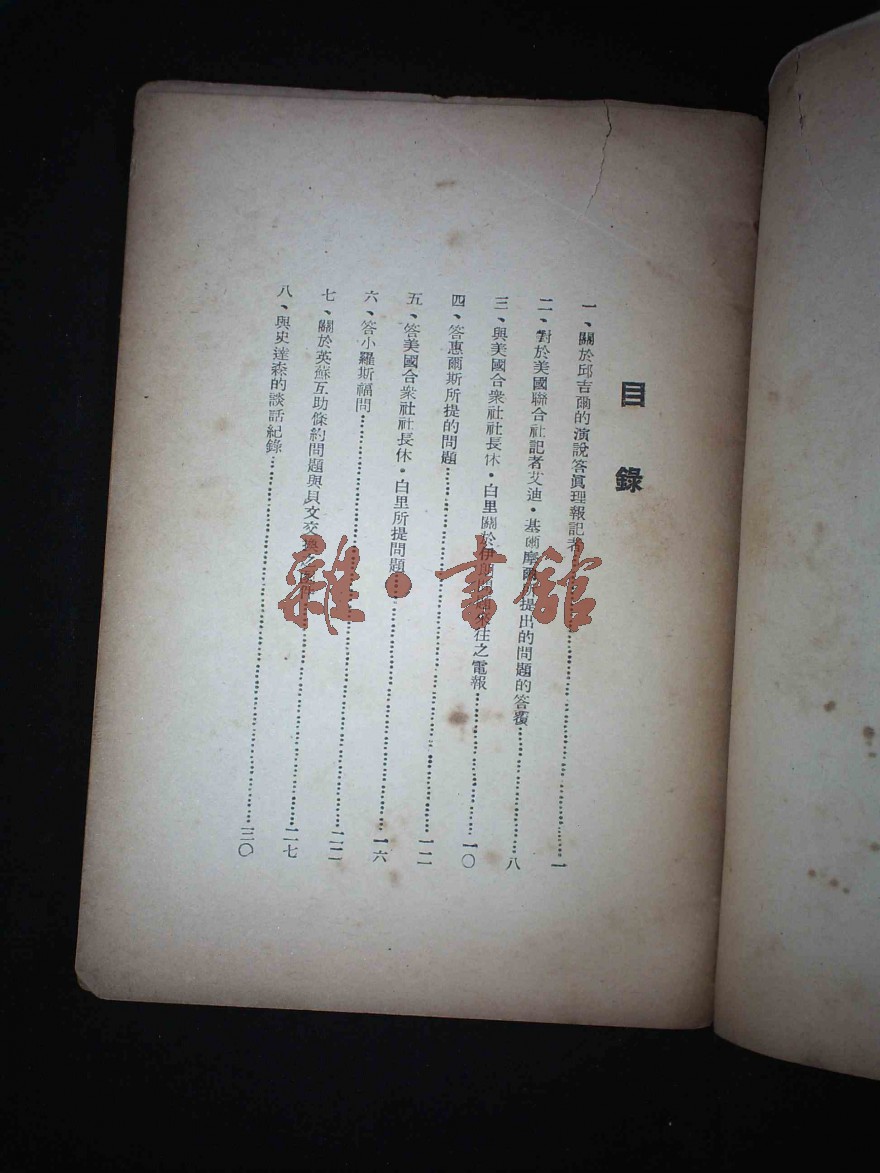 目錄
一、關於邱吉爾的演說答眞理報記者……一
二、對於美國聯合社記者艾迪·基爾摩爾所提出的問題的答覆……八
三、與美國合衆社社長休·白里關於伊朗問題來往之電報……一〇
四、答惠爾斯所提的問題……一一
五、答美國合衆社社長休·白里所提問題……一六
六、答小羅斯福問……二二
七、關於英蘇互助條約問題與貝文交換……二七
八、與史達森的談話紀錄……三〇
雜·書館